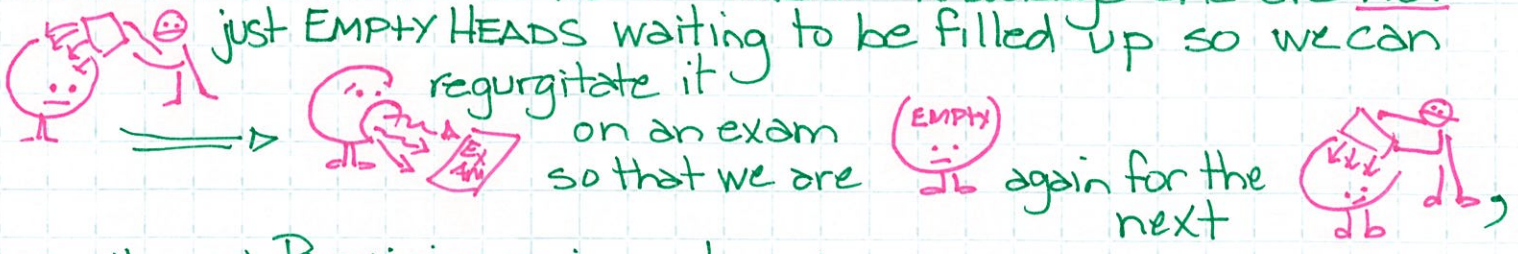 just EMPTY HEADS waiting to be filled up so we can
regurgitate it
on an exam
EX
AM
EMPTY
so that we are
again for the
next
,